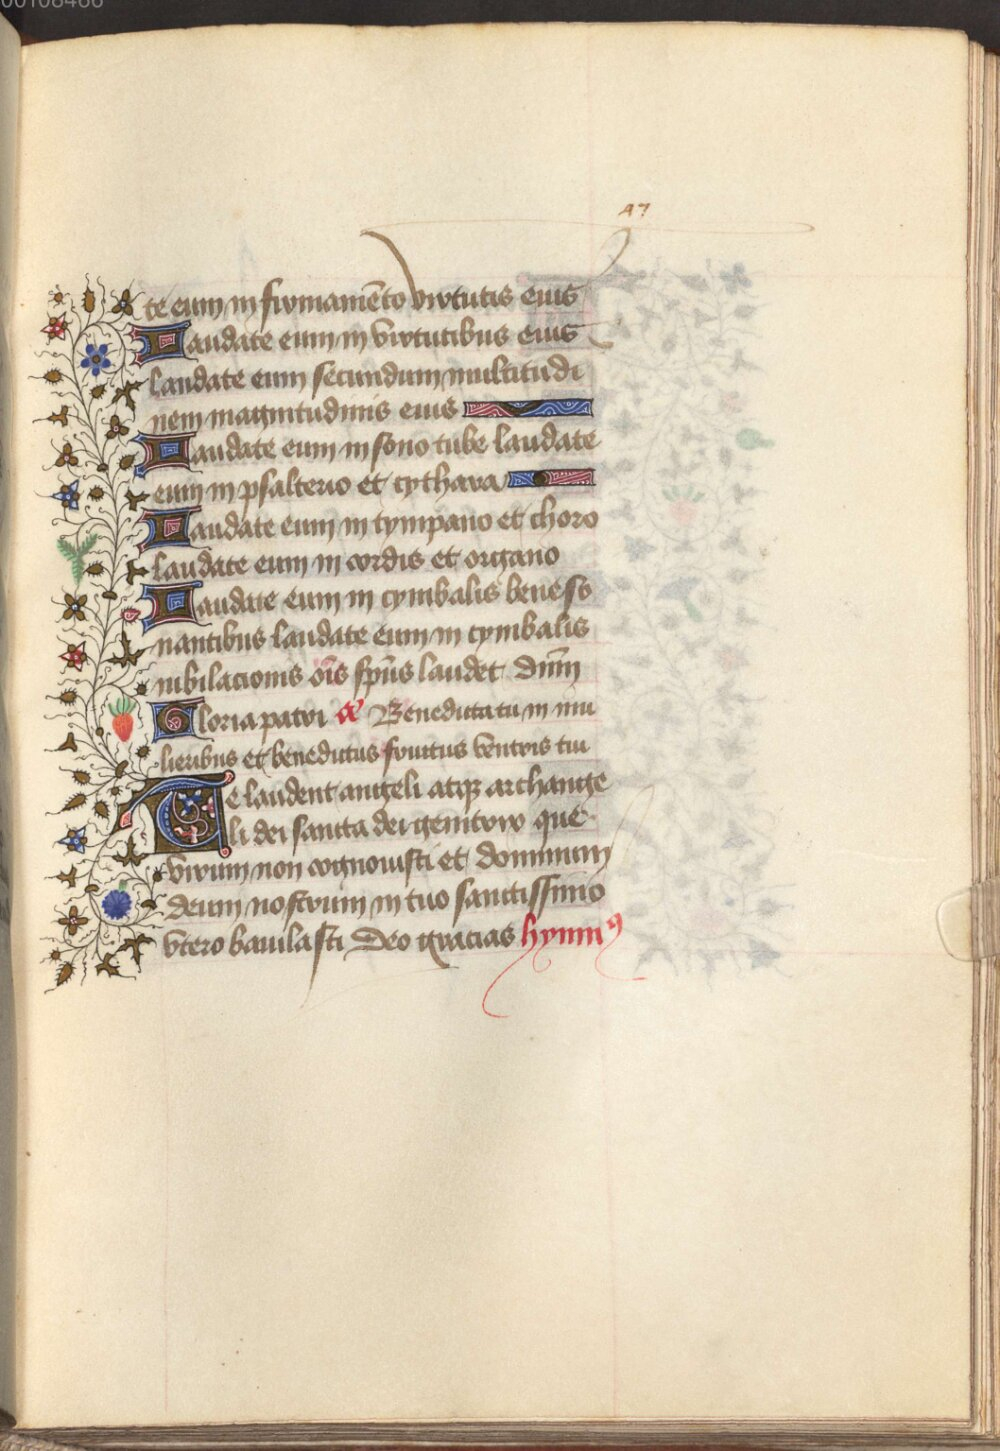 00108466
47
te eum in firmamēto virtutis eius
Laudate eum in virtutibus eius
laudate eum secundum multitudi
nem magnitudinis eius
Laudate eum in sono tube laudate
eum in psalterio et cythara
Laudate eum in tympano et choro
laudate eum in cordis et organo
Laudate eum in cymbalis beneso
nantibus laudate eum in cymbalis
iubilacionis oīs sp̄us laudet dn̄m
Gloria patri & Benedicta tu in mu
lieribus et benedictus fructus ventris tui
Te laudent angeli atqꝫ archange
li dei sancta dei genitrix que
virum non cognouisti et dominum
deum nostrum in tuo sanctissimo
vtero baiulasti Deo gracias hymnꝰ